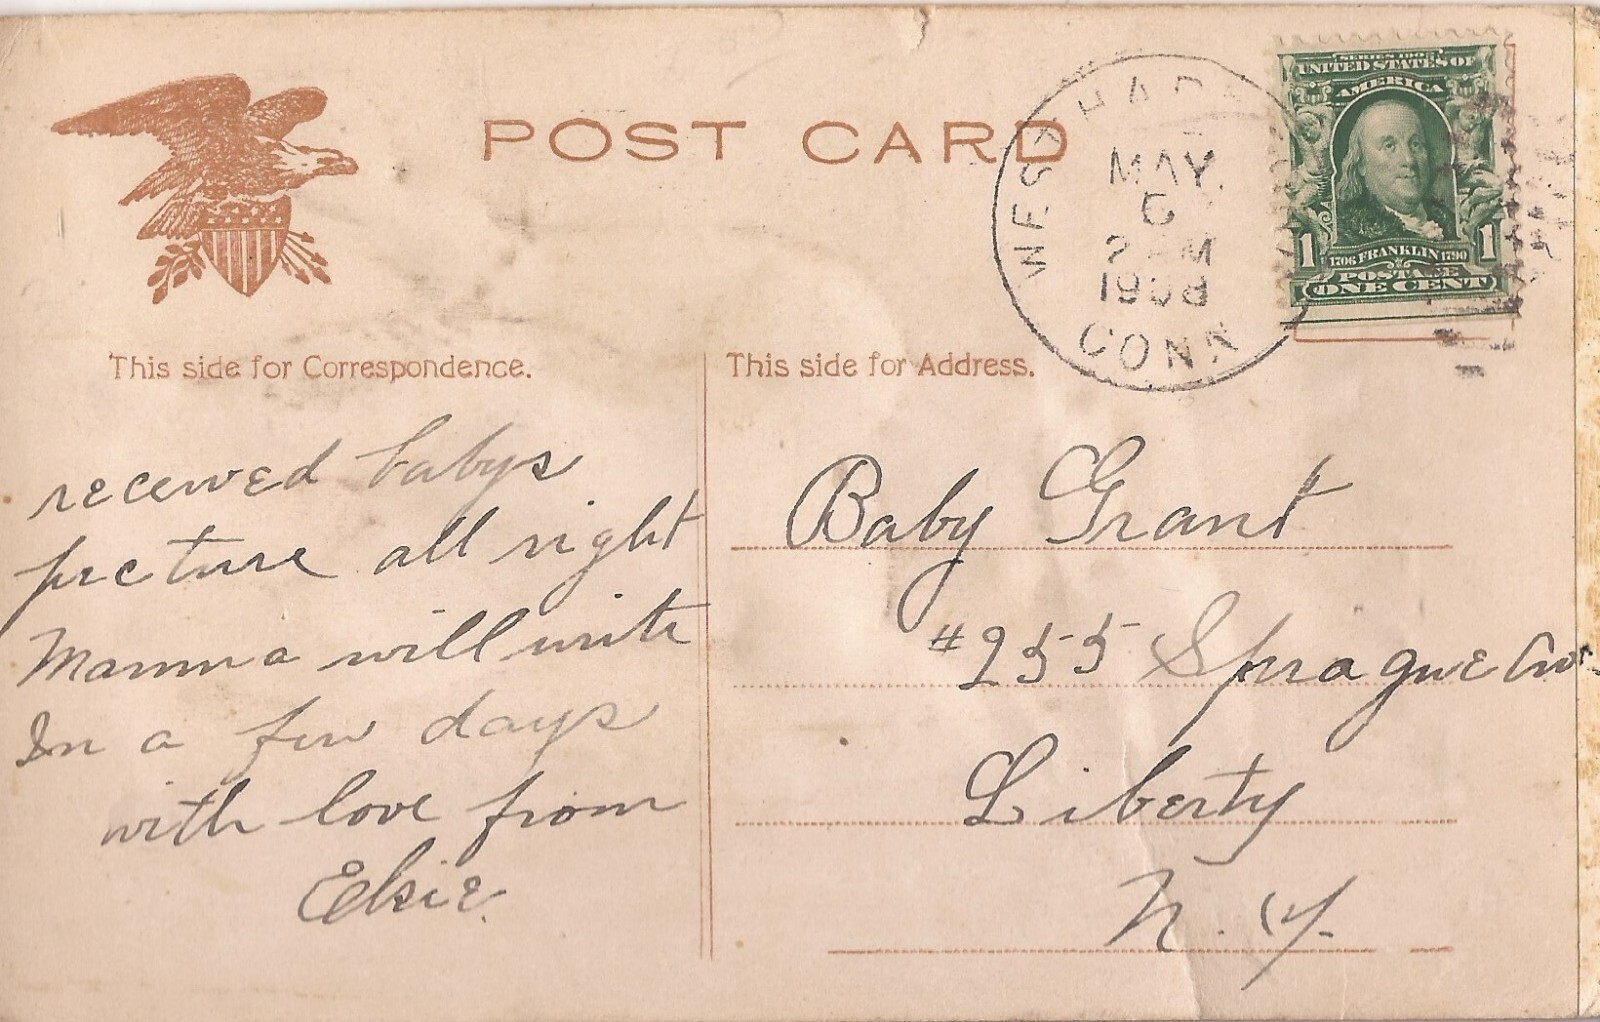 POST CARD
WEST HAR
MAY.
2 M
1908
CONN
SERIES 1902
UNITED STATES OF
AMERICA
1 1
1706 FRANKLIN 1790
POSTAGE
ONE CENT
This side for Correspondence.
received babys
picture all right
Mamma will write
In a few days
with love from
Elsie.
This side for Address.
Baby Grant
#255 Sprague Ave
Liberty
N. Y.